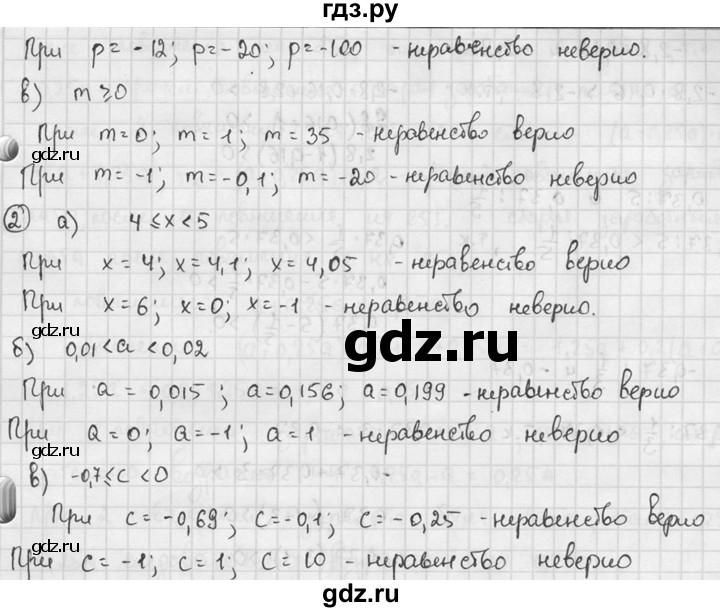 гдз.ру
При p = -12; p = -20; p = -100 - неравенство неверно.
в) m ⩾ 0
При m = 0; m = 1; m = 35 - неравенство верно
gdz.ru
При m = -1; m = -0,1; m = -20 - неравенство неверно
gdz.ru
② а) 4 ≤ x < 5
При x = 4; x = 4,1; x = 4,05 - неравенство верно
gdz.ru
При x = 6; x = 0; x = -1 - неравенство неверно.
gdz.ru
б) 0,01 < a < 0,02
gdz.ru
При a = 0,015; a = 0,156; a = 0,199 - неравенство верно
При a = 0; a = -1; a = 1 - неравенство неверно
gdz.ru
в) -0,7 ≤ c < 0
При c = -0,69; c = -0,1; c = -0,25 - неравенство верно
gdz.ru
При c = -1; c = 1; c = 10 - неравенство неверно
gdz.ru